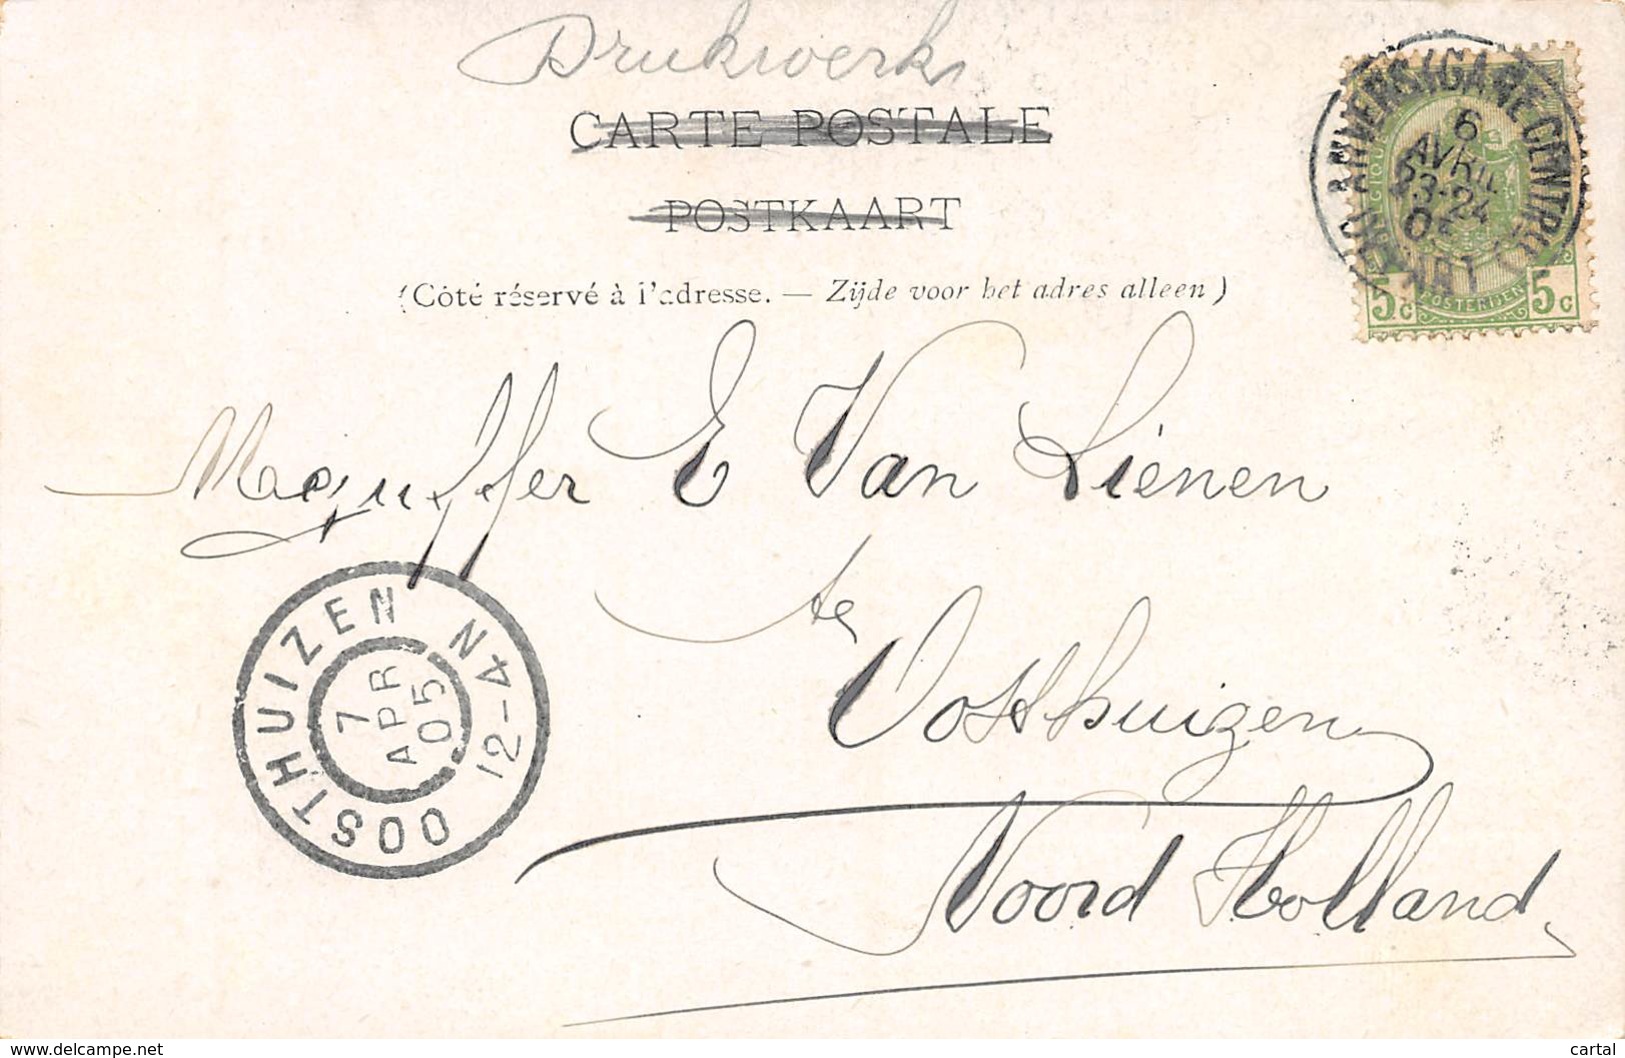 Drukwerk
CARTE POSTALE
POSTKAART
(Côté réservé à l'adresse. — Zijde voor het adres alleen)
ANVERS (GARE CENTRALE)
6
AVRIL
23-24
POSTERIJEN
5c 5c
Mejuffer E Van Liénen
te
Oosthuizen
Noord Holland
OOSTHUIZEN
7
APR
05
12-4N
delcampe.net
cartal